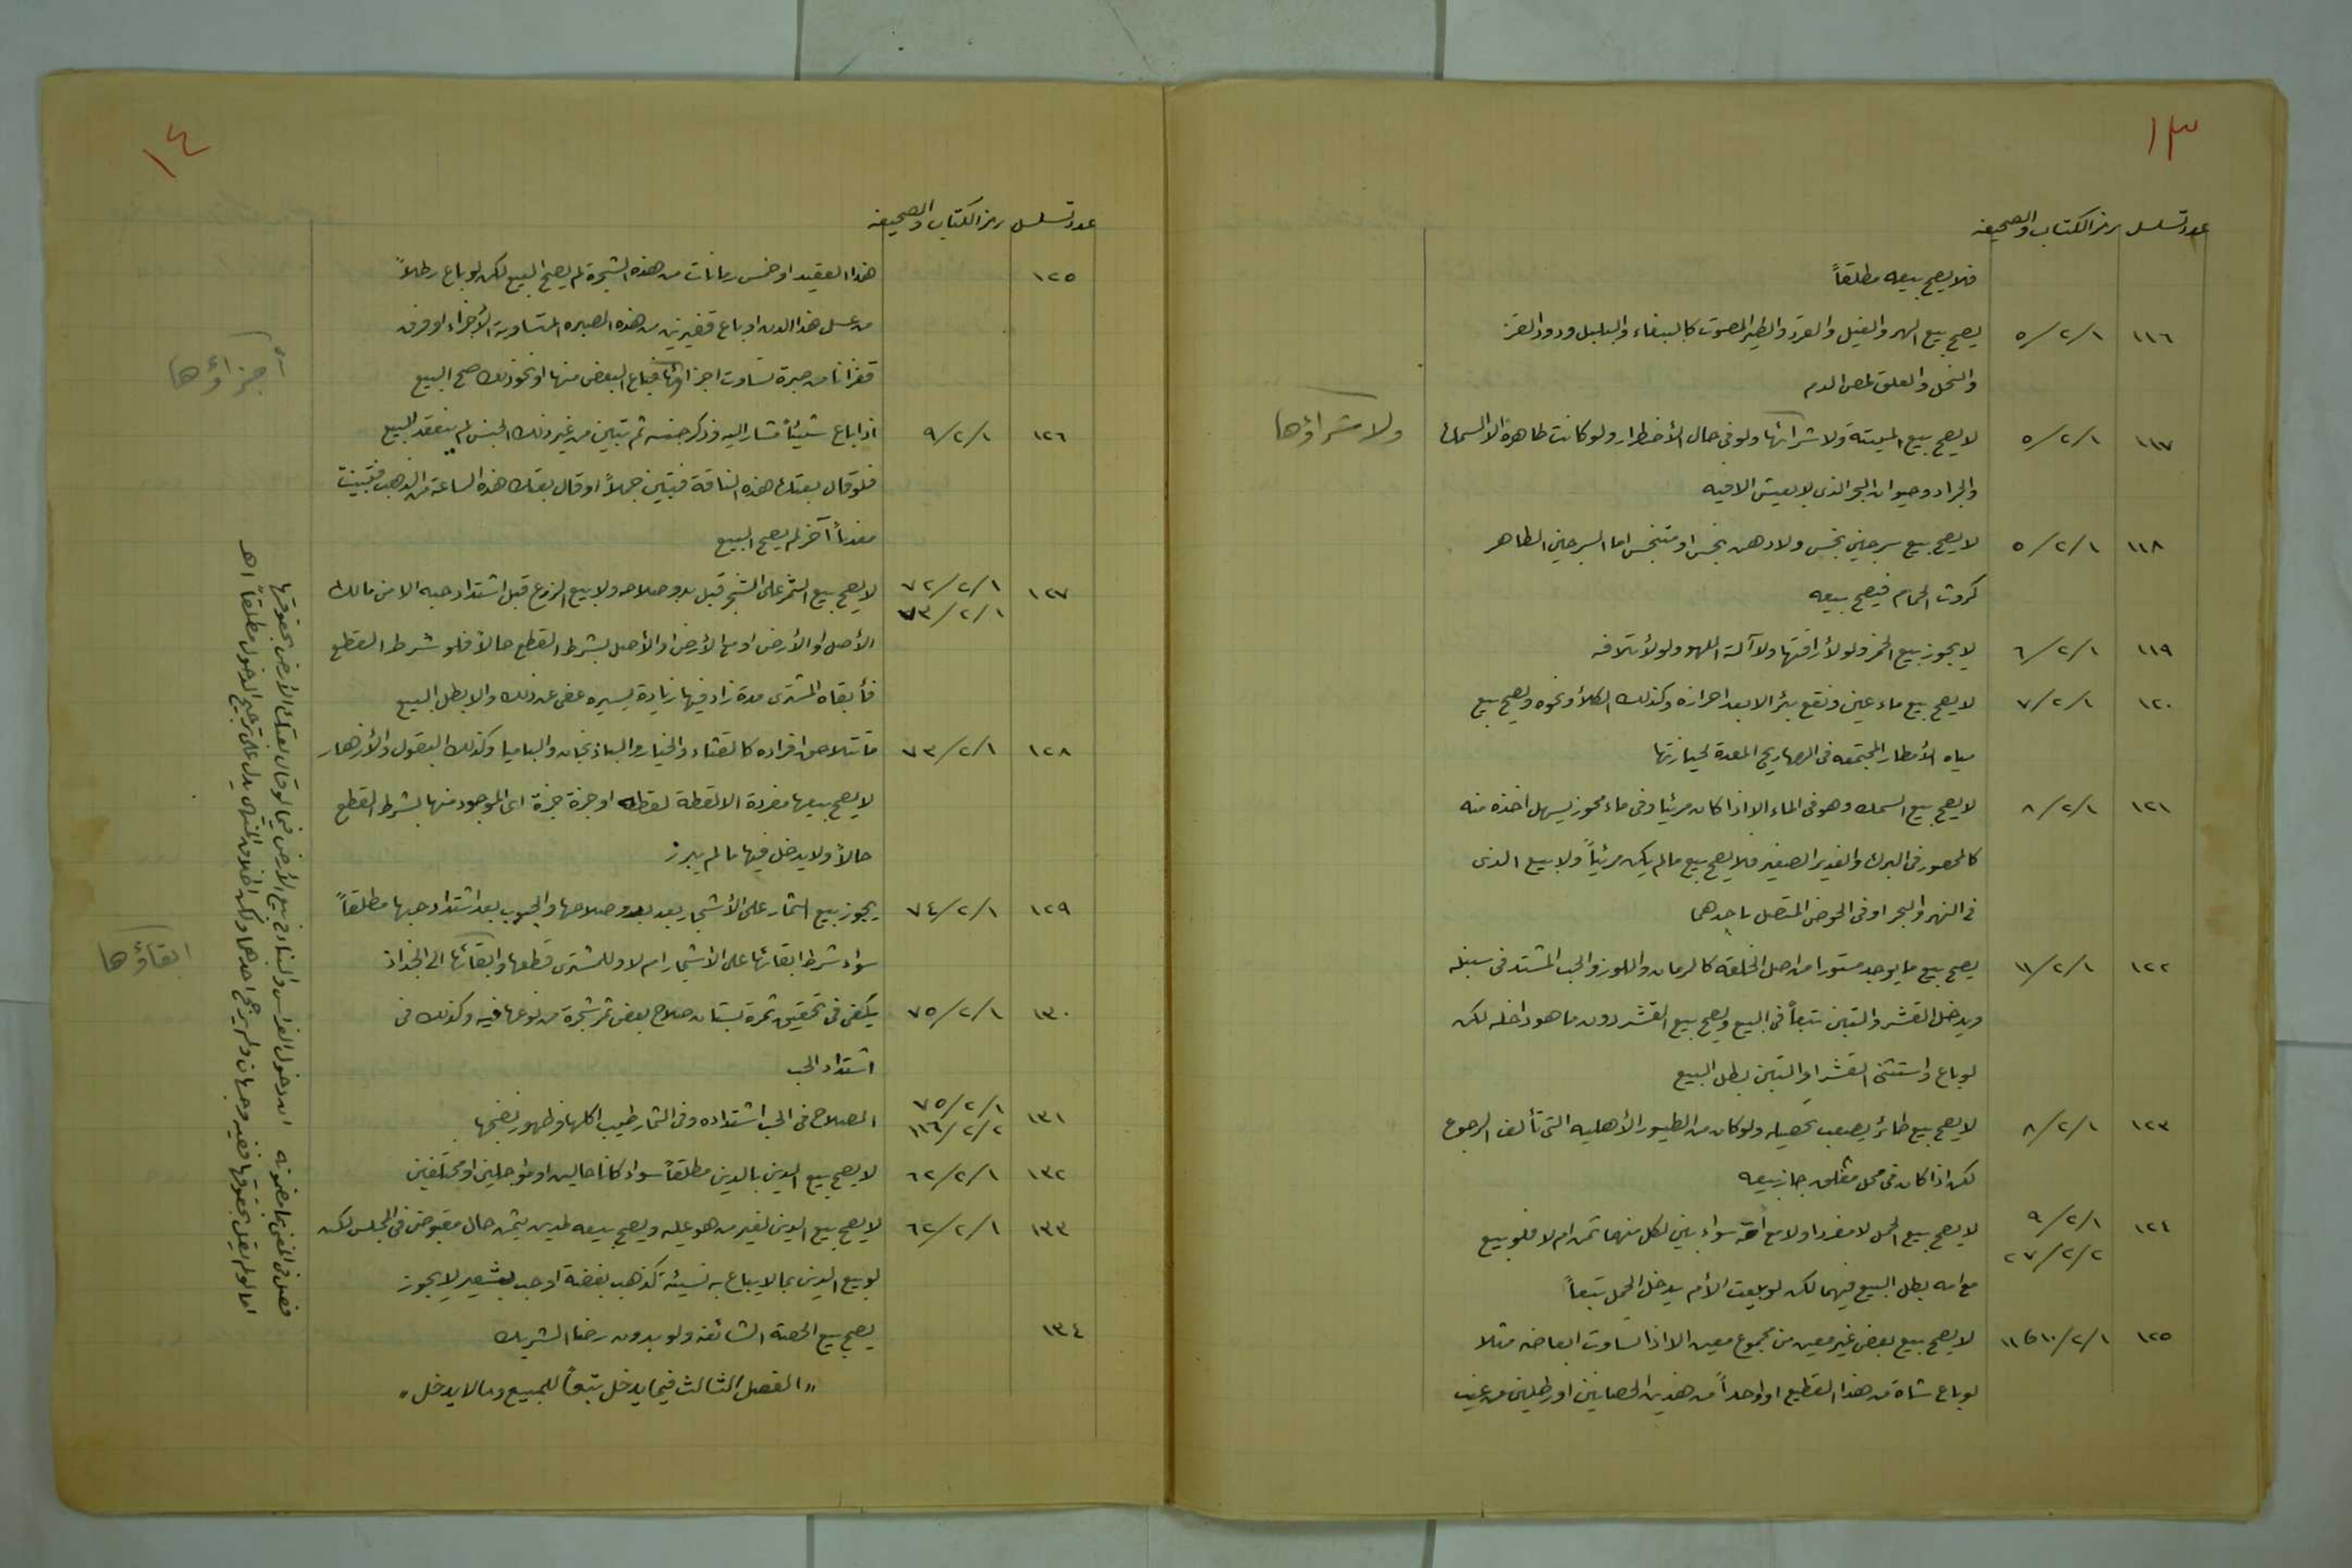 ١٣
عدد تسلسل رمز الكتاب والصحيفه
فلا يصح بيعه مطلقاً
١١٦ ٥/٢/١ يصح بيع الهر والفيل والقرد والطير المصوت كالببغاء والبلبل ودود القز
والنحل والعلق لمص الدم
١١٧ ٥/٢/١ لا يصح بيع الميتة ولا شرائها ولو في حال الأضطرار ولو كانت طاهرة الا السمك
ولا شراؤها
والجراد وحيوان البحر الذي لا يعيش الا فيه
١١٨ ٥/٢/١ لا يصح بيع سرجين نجس ولا دهن نجس او متنجس اما السرجين الطاهر
كروث الحمام فيصح بيعه
١١٩ ٦/٢/١ لا يجوز بيع الخمر ولو لأراقتها ولا آلة اللهو ولو لأتلافه
١٢٠ ٧/٢/١ لا يصح بيع ماء عين ونقع بئر الا بعد احرازه وكذلك الكلأ ونحوه ويصح بيع
مياه الأمطار المجتمعه في الصهاريج المعدة لحيازتها
١٢١ ٨/٢/١ لا يصح بيع السمك وهو في الماء الا اذا كان مرئيا وفي ماء محوز يسهل اخذه منه
كالمحصور في البرك والغدير الصغير فلا يصح بيع ما لم يكن مرئياً ولا بيع الذي
في النهر والبحر او في الحوض المتصل باحدهما
١٢٢ ١١/٢/١ يصح بيع ما يوجد مستورا من اصل الخلقه كالرمان واللوز والحب المشتد في سنبله
ويدخل القشر والتبن تبعاً في البيع ويصح بيع القشر دون ما هو داخله لكن
لو باع واستثنى القشر او التبن بطل البيع
١٢٣ ٨/٢/١ لا يصح بيع طائر يصعب تحصيله ولو كان من الطيور الأهليه التي تألف الرجوع
لكن اذا كان في محل مغلق جاز بيعه
١٢٤ ٩/٢/١ ٢٧/٢/٢ لا يصح بيع الحمل لا مفردا ولا مع امه سواء بين لكل منهما ثمن ام لا فلو بيع
مع امه بطل البيع فيهما لكن لو بيعت الأم يدخل الحمل تبعاً
١٢٥ ١٠/٢/١ و١١ لا يصح بيع بعض غير معين من مجموع معين الا اذا تساوت ابعاضه مثلا
لو باع شاة من هذا القطيع او واحداً من هذين الحصانين او رطلين من عنب
١٤
عدد تسلسل رمز الكتاب والصحيفه
١٢٥ هذا العقيد او خمس رمانات من هذه الشجرة لم يصح البيع لكن لو باع رطلاً
من عسل هذا الدن او باع قفيزين من هذه الصبره المتساوية الأجزاء او فرق
قفزانا من صبرة تساوت اجزائها فباع البعض منها او نحو ذلك صح البيع
أجزاؤها
١٢٦ ٩/٢/١ اذا باع شيئاً مشار اليه وذكر جنسه ثم تبين من غير ذلك الجنس لم ينعقد البيع
فلو قال بعتك هذه الناقة فتبين جملاً او قال بعتك هذه الساعة من الذهب فتبينت
معدناً آخر لم يصح البيع
١٢٧ ٧٢/٢/١ ٧٣/٢/١ لا يصح بيع الثمر على الشجر قبل بدو صلاحه ولا بيع الزرع قبل اشتداد حبه الا من مالك
الأصل او الأرض او مع الأرض او الأصل بشرط القطع حالاً فلو شرط القطع
فأبقاه المشتري مدة زاد فيها زيادة يسيره عفي عن ذلك والا بطل البيع
١٢٨ ٧٣/٢/١ ما تتلاحق افراده كالقثاء والخيار والباذنجان والباميا وكذلك البقول والأزهار
لا يصح بيعها مفردة الا لقطة لقطه او جزة جزة اي الموجود منها بشرط القطع
حالاً ولا يدخل فيها ما لم يبرز
١٢٩ ٧٤/٢/١ يجوز بيع الثمار على الأشجار بعد بدو صلاحها والحبوب بعد اشتداد حبها مطلقاً
سواء شرط ابقائها على الاشجار ام لا وللمشتري قطعها وابقائها الى الجذاذ
ابقاؤها
١٣٠ ٧٥/٢/١ يكفي في تحقيق ثمرة بستان صلاح بعض ثمر شجرة من نوعها فيه وكذلك في
اشتداد الحب
١٣١ ٧٥/٢/١ ١١٦/٢/٢ الصلاح في الحب اشتداده وفي الثمار طيب اكلها وظهور نضجها
١٣٢ ٦٢/٢/١ لا يصح بيع الدين بالدين مطلقاً سواء كانا حالين او مؤجلين او مختلفين
١٣٣ ٦٢/٢/١ لا يصح بيع الدين لغير من هو عليه ويصح بيعه لمدين بثمن حال مقبوض في المجلس لكن
لو بيع الدين بما لا يباع به نسيئة كذهب بفضة او حب بشعير لا يجوز
١٣٤ يصح بيع الحصة الشائعه ولو بدون رضا الشريك
"الفصل الثالث فيما يدخل تبعاً للمبيع وما لا يدخل"
فصل في المغني ما مضمونه ان دخول الغراس والبناء في بيع الأرض فيما لو قال بعتك الأرض بحقوقها
اما لو لم يقل بحقوقها ففيه وجهان ولم يرجح احدهما ولكن اطلاق المنتهى يدل على ترجيح الدخول مطلقاً اهـ